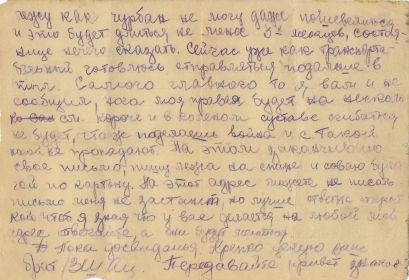 лежу как чурбан не могу даже пошевелиться
и это будет длиться не менее 3х месяцев, состоя-
ние нечего сказать. Сейчас уже как транспорта-
бельный готовлюсь отправляться подальше в
тыл. Самого главного то я, вам и не
сообщил, нога моя правая будет на несколько
см. короче и в коленом суставе сгибаться
не будет, что же поделаешь война и с такой
ногой не пропадают. На этом заканчиваю
свое письмо, пишу лежа на спине и
по картону. На этот адрес пишете не писать
письмо меня не застанет, но лучше ответьте
чтоб я знал что у вас делается на любой мой
адрес отвечайте а они будут
Пока досвидания крепко целую
брат Передавайте привет